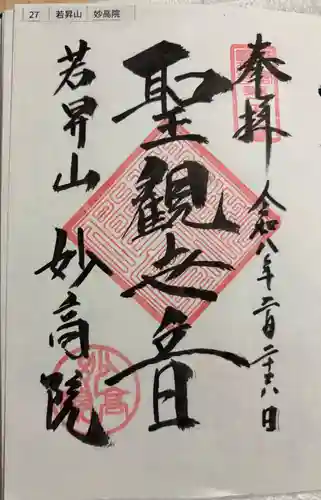 27 若昇山 妙高院
奉拝
令和八年二月二十六日
聖観世音
若昇山 妙高院